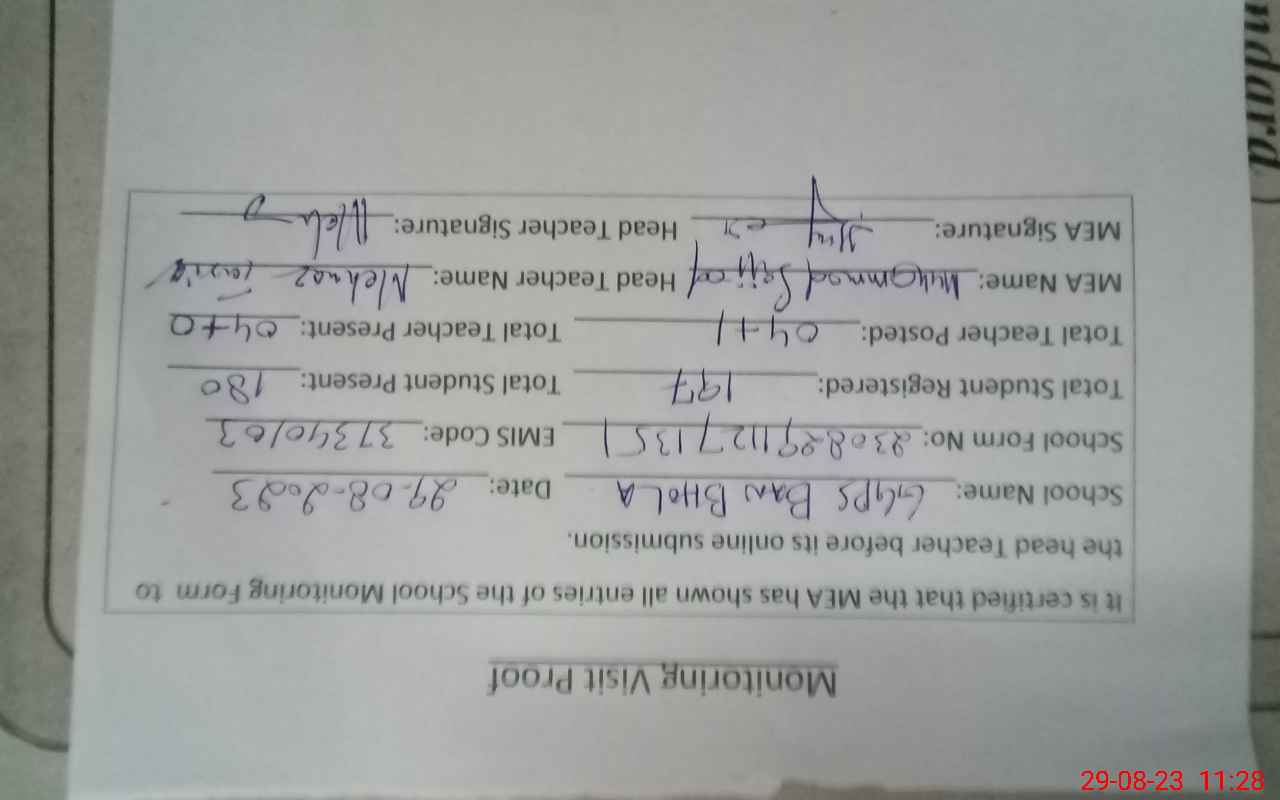 Monitoring Visit Proof
It is certified that the MEA has shown all entries of the School Monitoring Form to
the head Teacher before its online submission.
School Name: GGPS BAN BHOLA Date: 29-08-2023
School Form No: 23082911271351 EMIS Code: 37340103
Total Student Registered: 197 Total Student Present: 180
Total Teacher Posted: 04+1 Total Teacher Present: 04+0
MEA Name: Muhammad Sajjad Head Teacher Name: Mehnaz
MEA Signature: Head Teacher Signature:
ndard
29-08-23 11:28